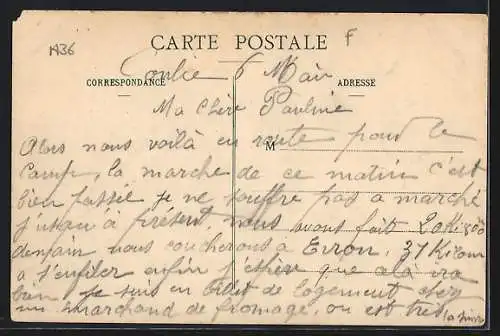 1436
F
CARTE POSTALE
CORRESPONDANCE
ADRESSE
M
Conlie 6 Mai
Ma Chère Pauline
Alors nous voilà en route pour le
Camp, la marche de ce matin c'est
bien passée je ne souffre pas a marché
jusqu'a présent, nous avons fait 20 Ki 800
demain nous coucherons a Evron, 37 Ki
a s'enfiler enfin j'éspère que ala ira
bien, je suis en billet de logement chez
un marchand de fromage, on est très